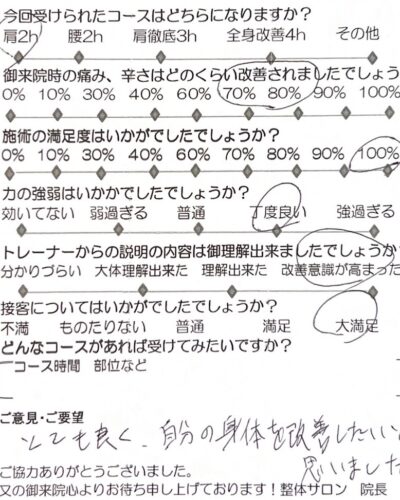 今回受けられたコースはどちらになりますか?
肩2h 腰2h 肩徹底3h 全身改善4h その他
御来院時の痛み、辛さはどのくらい改善されましたでしょう
0% 10% 30% 40% 60% 70% 80% 90% 100%
施術の満足度はいかがでしたでしょうか?
0% 10% 30% 40% 60% 70% 80% 90% 100%
力の強弱はいかかでしたでしょうか?
効いてない 弱過ぎる 普通 丁度良い 強過ぎる
トレーナーからの説明の内容は御理解出来ましたでしょうか
分かりづらい 大体理解出来た 理解出来た 改善意識が高まった
接客についてはいかがでしたでしょうか?
不満 ものたりない 普通 満足 大満足
どんなコースがあれば受けてみたいですか?
コース時間 部位など
ご意見・ご要望
とても良く、自分の身体を改善したいと
思いました
ご協力ありがとうございました。
又の御来院心よりお待ち申し上げております!整体サロン 院長